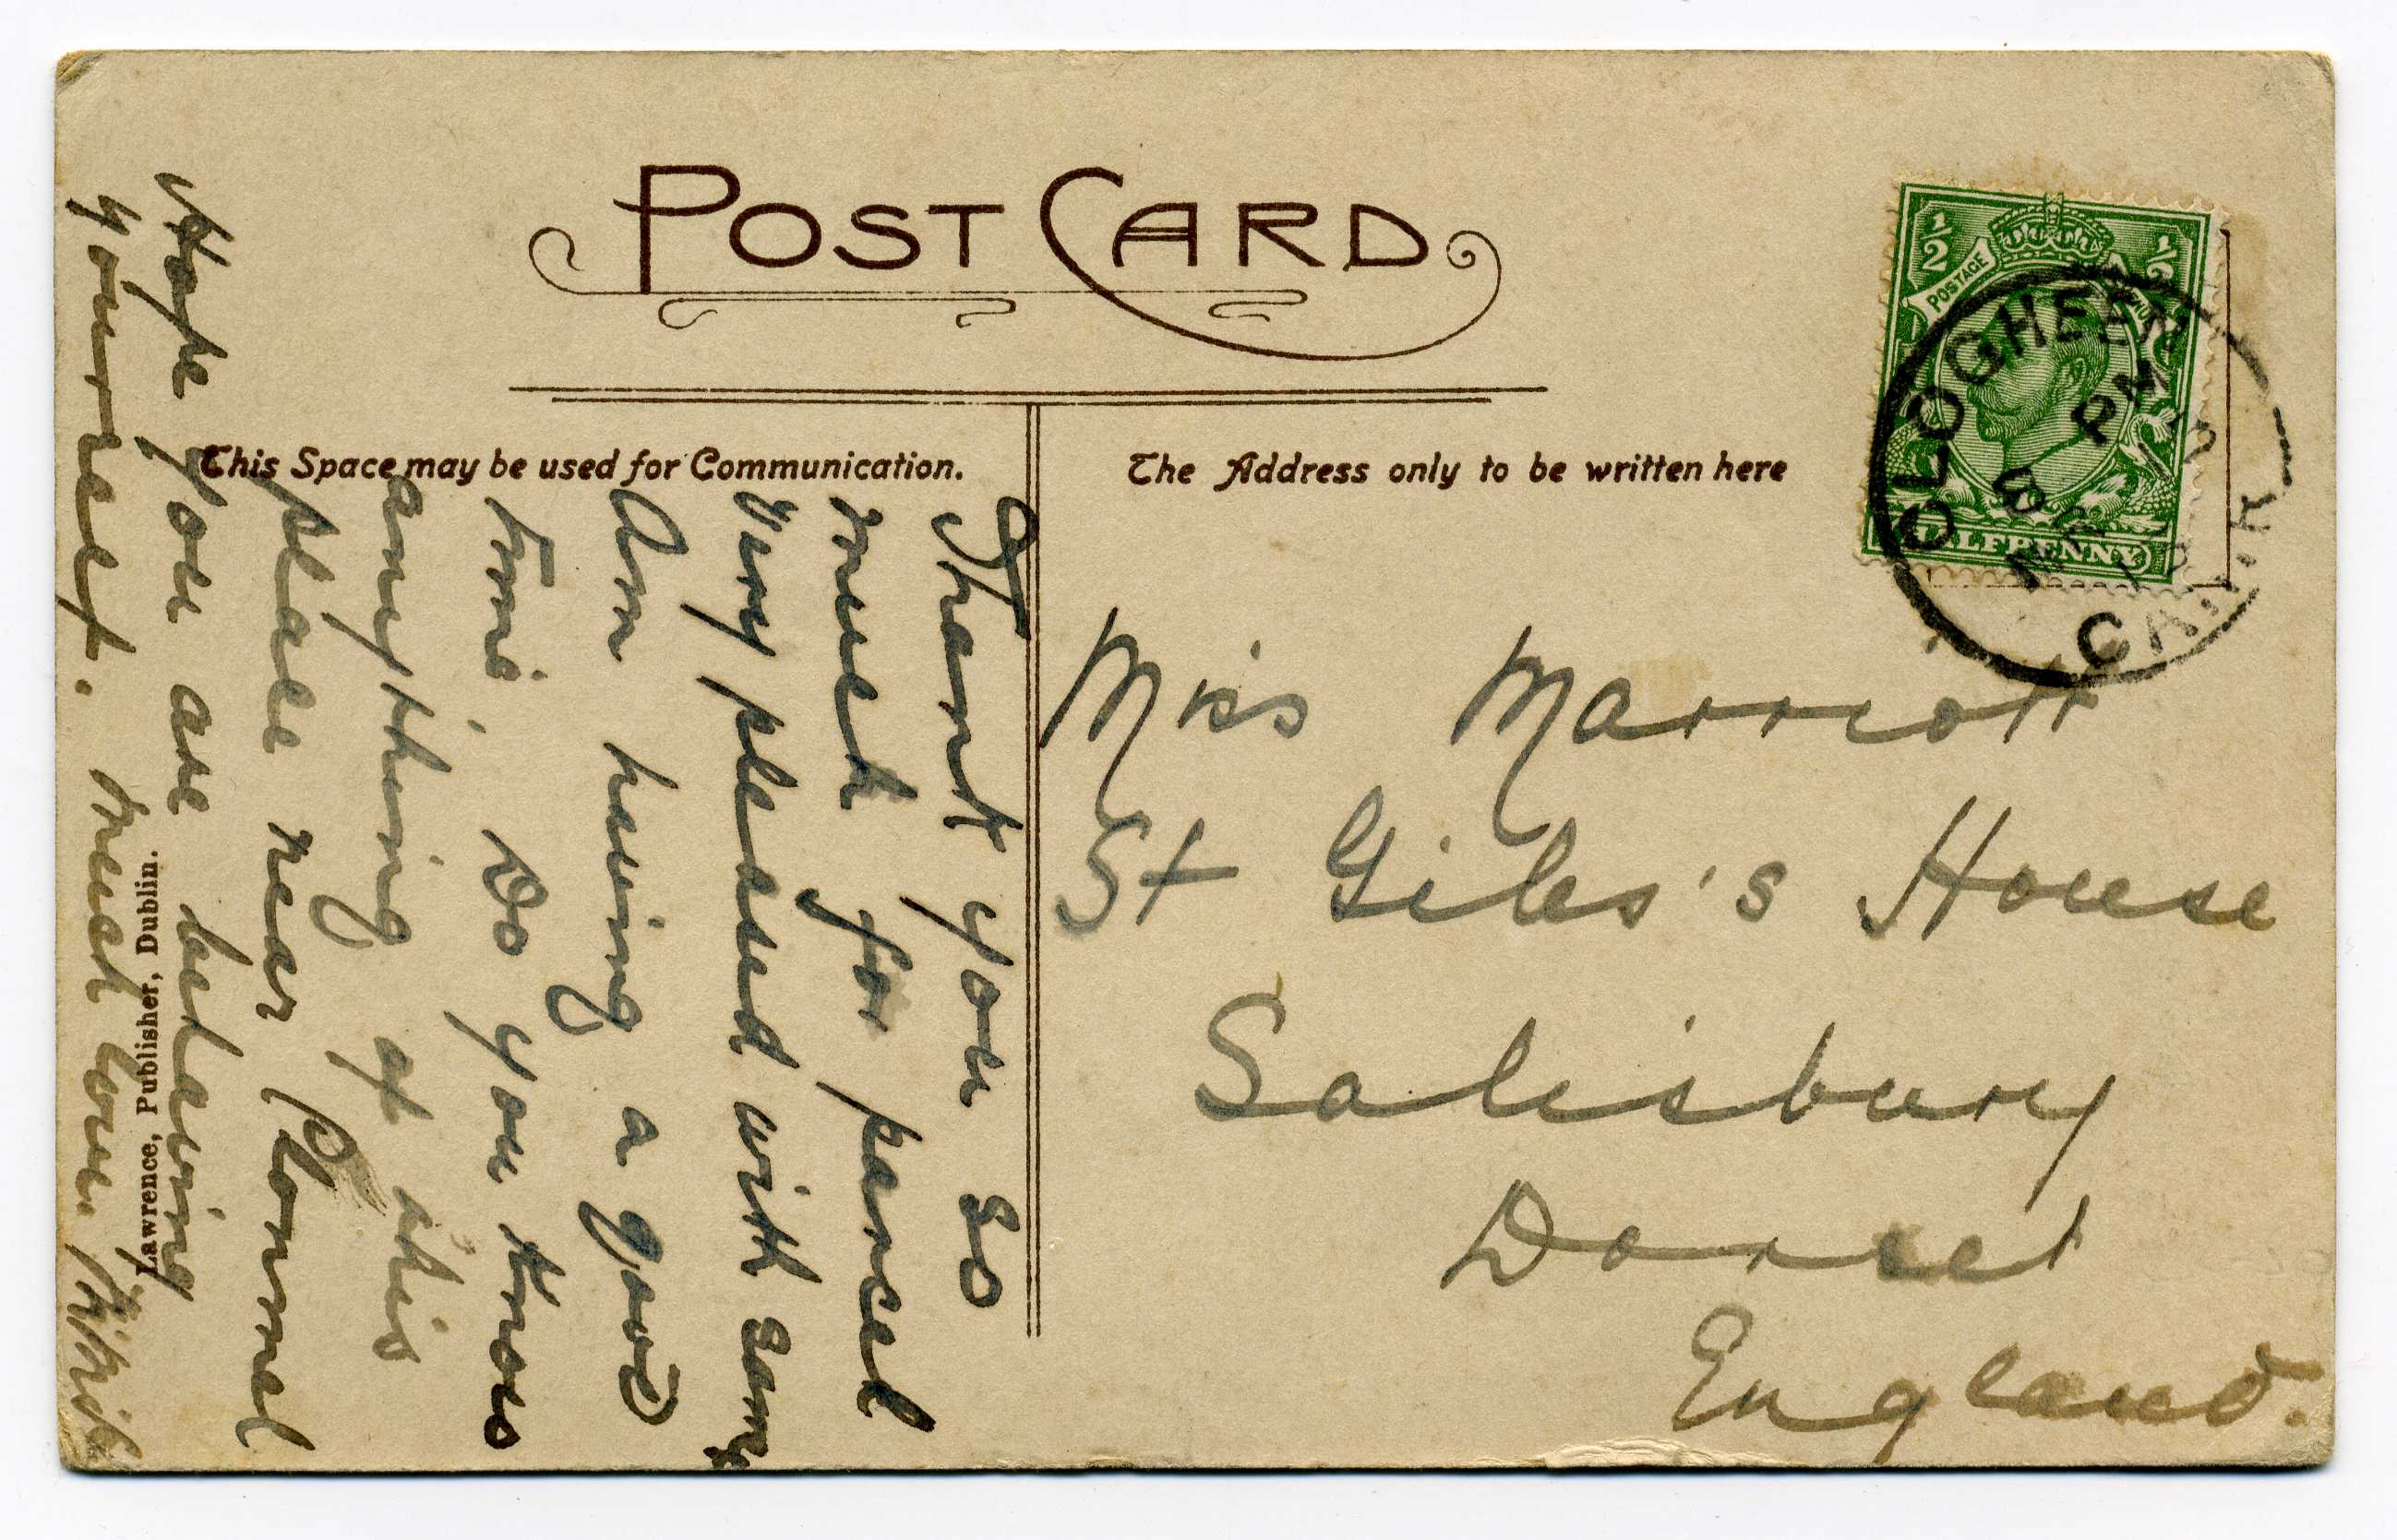 POST CARD
This Space may be used for Communication.
The Address only to be written here
½
½
POSTAGE
HALFPENNY
CLOGHEEN
CAHIR
Miss Marriott
St Giles's House
Salisbury
Dorset
England.
Thank you so
much for parcel
very pleased with same
Am having a good
time. Do you know
anything of this
place near Clonmel
Hope you are behaving
yourself. much love.
Lawrence, Publisher, Dublin.